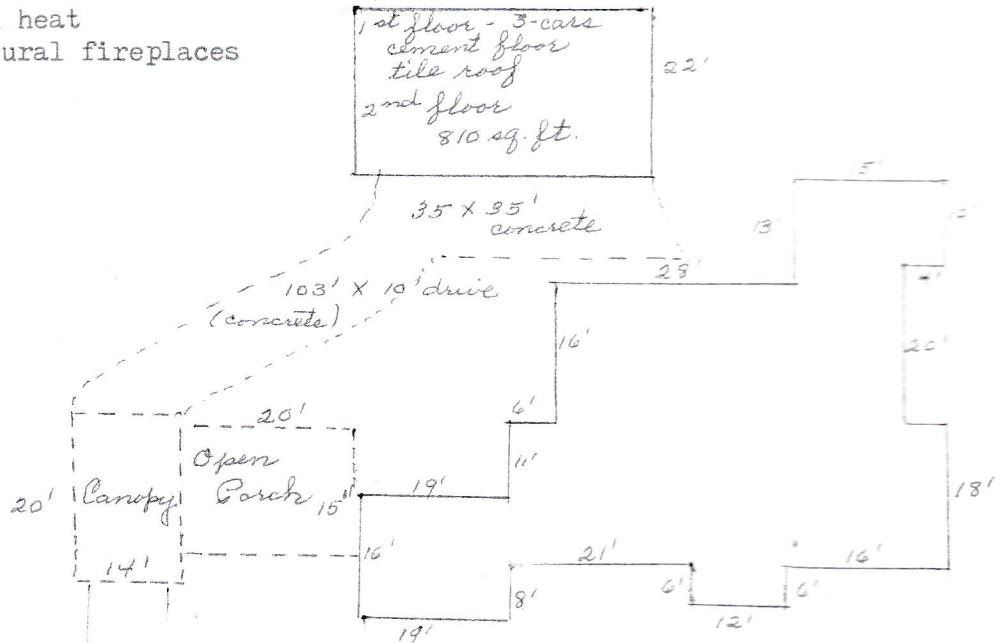 heat
ural fireplaces
1st floor - 3-cars
cement floor
tile roof
2nd floor
810 sq. ft.
22'
35 X 35'
concrete
15'
13'
28'
4'
103' X 10' drive
(concrete)
16'
20'
6'
20'
Open
Porch
15'
11'
19'
20'
Canopy
18'
14'
16'
21'
16'
8'
6'
6'
12'
19'